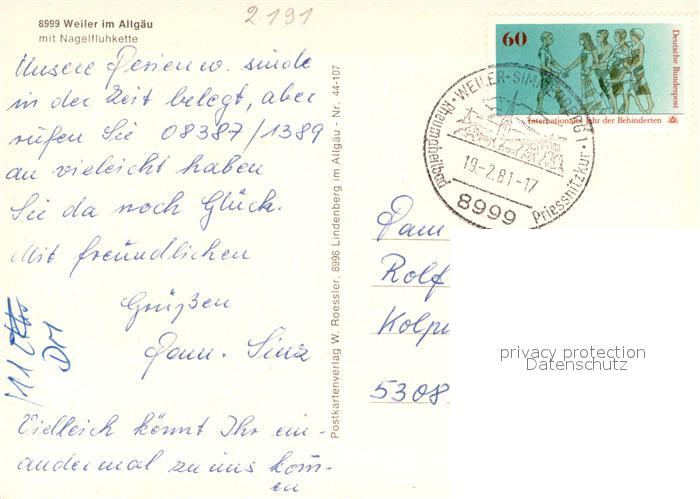 2191
8999 Weiler im Allgäu
mit Nagelfluhkette
Unsere Ferienw. sind
in der Zeit belegt, aber
rufen Sie 08387/1389
an vieleicht haben
Sie da noch Glück.
Mit freundlichen
Grüßen
Fam. Sinz
Vielleich könnt Ihr ein-
andermal zu uns kom-
en
11
DM
Postkartenverlag W. Roessler, 8998 Lindenberg im Allgäu - Nr. 44-107
60
Deutsche Bundespost
Internationales Jahr der Behinderten
WEILER-SIMM
Rheumaheilbad
Priessnitzkur
19-2.81-17
8999
Fam
Rolf
Kolpi
5308
privacy protection
Datenschutz